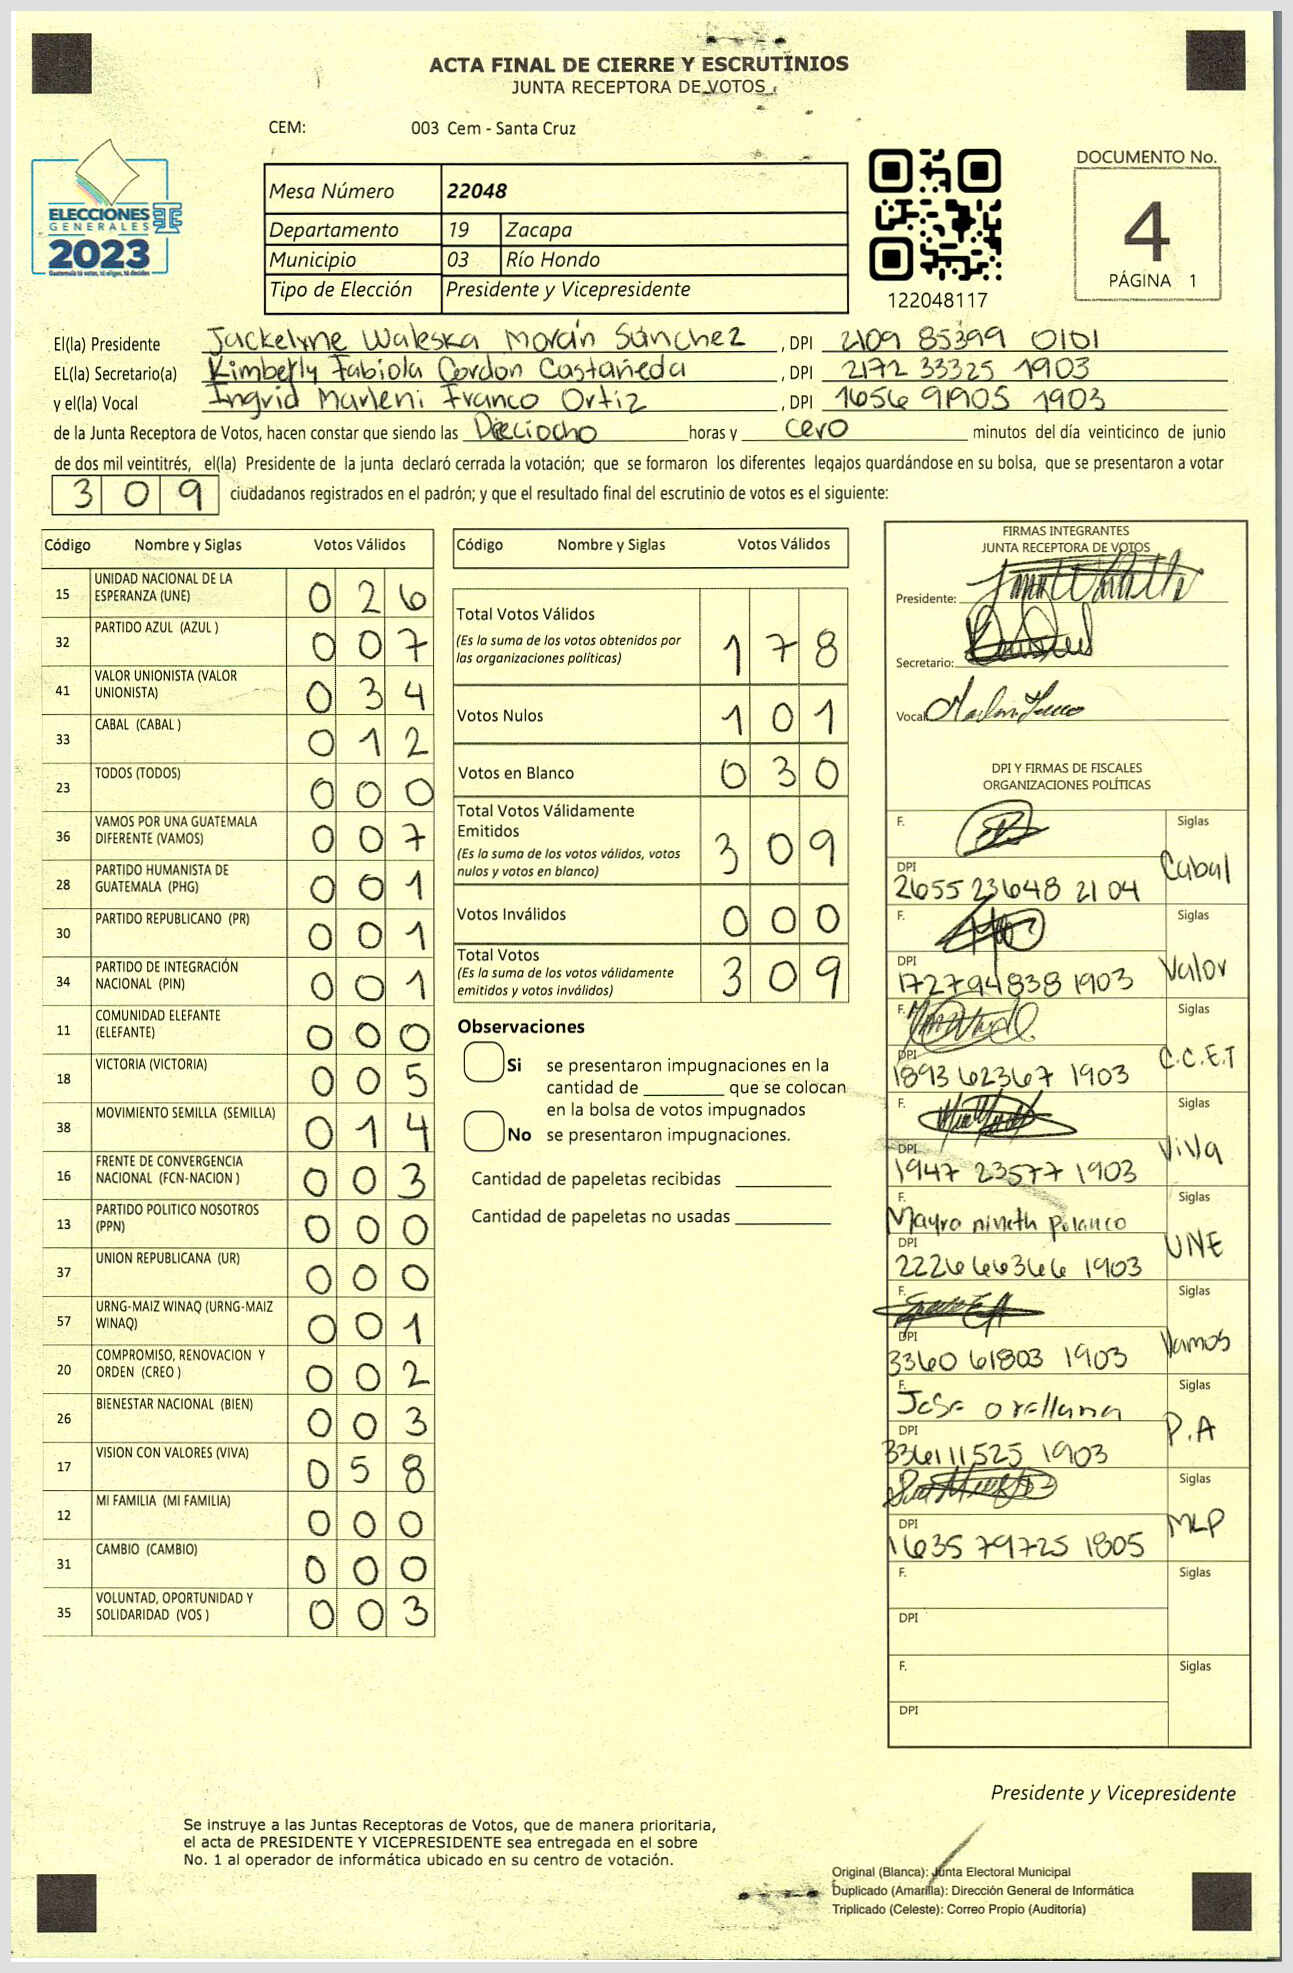 ACTA FINAL DE CIERRE Y ESCRUTINIOS
JUNTA RECEPTORA DE VOTOS
CEM: 003 Cem - Santa Cruz
ELECCIONES
GENERALES
2023
Guatemala tú votas, tú eliges, tú decides
Mesa Número 22048
Departamento 19 Zacapa
Municipio 03 Río Hondo
Tipo de Elección Presidente y Vicepresidente
122048117
DOCUMENTO No.
4
PÁGINA 1
El(la) Presidente Jackelyne Waleska Morán Sánchez, DPI 2109 85399 0101
EL(la) Secretario(a) Kimberly Fabiola Cordon Castañeda, DPI 2172 33325 1903
y el(la) Vocal Ingrid Marleni Franco Ortiz, DPI 1656 91905 1903
de la Junta Receptora de Votos, hacen constar que siendo las Dieciocho horas y cero minutos del día veinticinco de junio
de dos mil veintitrés, el(la) Presidente de la junta declaró cerrada la votación; que se formaron los diferentes legajos guardándose en su bolsa, que se presentaron a votar
309 ciudadanos registrados en el padrón; y que el resultado final del escrutinio de votos es el siguiente:
Código Nombre y Siglas Votos Válidos
15 UNIDAD NACIONAL DE LA ESPERANZA (UNE) 026
32 PARTIDO AZUL (AZUL ) 007
41 VALOR UNIONISTA (VALOR UNIONISTA) 034
33 CABAL (CABAL ) 012
23 TODOS (TODOS) 000
36 VAMOS POR UNA GUATEMALA DIFERENTE (VAMOS) 007
28 PARTIDO HUMANISTA DE GUATEMALA (PHG) 001
30 PARTIDO REPUBLICANO (PR) 001
34 PARTIDO DE INTEGRACIÓN NACIONAL (PIN) 001
11 COMUNIDAD ELEFANTE (ELEFANTE) 000
18 VICTORIA (VICTORIA) 005
38 MOVIMIENTO SEMILLA (SEMILLA) 014
16 FRENTE DE CONVERGENCIA NACIONAL (FCN-NACION ) 003
13 PARTIDO POLITICO NOSOTROS (PPN) 000
37 UNION REPUBLICANA (UR) 000
57 URNG-MAIZ WINAQ (URNG-MAIZ WINAQ) 001
20 COMPROMISO, RENOVACION Y ORDEN (CREO ) 002
26 BIENESTAR NACIONAL (BIEN) 003
17 VISION CON VALORES (VIVA) 058
12 MI FAMILIA (MI FAMILIA) 000
31 CAMBIO (CAMBIO) 000
35 VOLUNTAD, OPORTUNIDAD Y SOLIDARIDAD (VOS ) 003
Código Nombre y Siglas Votos Válidos
Total Votos Válidos 178
(Es la suma de los votos obtenidos por
las organizaciones políticas)
Votos Nulos 101
Votos en Blanco 030
Total Votos Válidamente
Emitidos 309
(Es la suma de los votos válidos, votos
nulos y votos en blanco)
Votos Inválidos 000
Total Votos 309
(Es la suma de los votos válidamente
emitidos y votos inválidos)
Observaciones
Si se presentaron impugnaciones en la
cantidad de que se colocan
en la bolsa de votos impugnados
No se presentaron impugnaciones.
Cantidad de papeletas recibidas
Cantidad de papeletas no usadas
FIRMAS INTEGRANTES
JUNTA RECEPTORA DE VOTOS
Presidente:
Secretario:
Vocal
DPI Y FIRMAS DE FISCALES
ORGANIZACIONES POLÍTICAS
F. Siglas
DPI Cabal
2655 23648 2104
F. Siglas
DPI Valor
1727 94838 1903
F. Siglas
DPI C.C.E.T
1893 62367 1903
F. Siglas
DPI ViVa
1947 23577 1903
F. Siglas
Mayra nineth polanco
DPI UNE
2226 66366 1903
F. Siglas
DPI Vamos
3360 61803 1903
F. Siglas
Jose orellana
DPI P.A
3361 11525 1903
Siglas
DPI MLP
1635 79725 1805
F. Siglas
DPI
F. Siglas
DPI
Presidente y Vicepresidente
Se instruye a las Juntas Receptoras de Votos, que de manera prioritaria,
el acta de PRESIDENTE Y VICEPRESIDENTE sea entregada en el sobre
No. 1 al operador de informática ubicado en su centro de votación.
Original (Blanca): Junta Electoral Municipal
Duplicado (Amarilla): Dirección General de Informática
Triplicado (Celeste): Correo Propio (Auditoría)